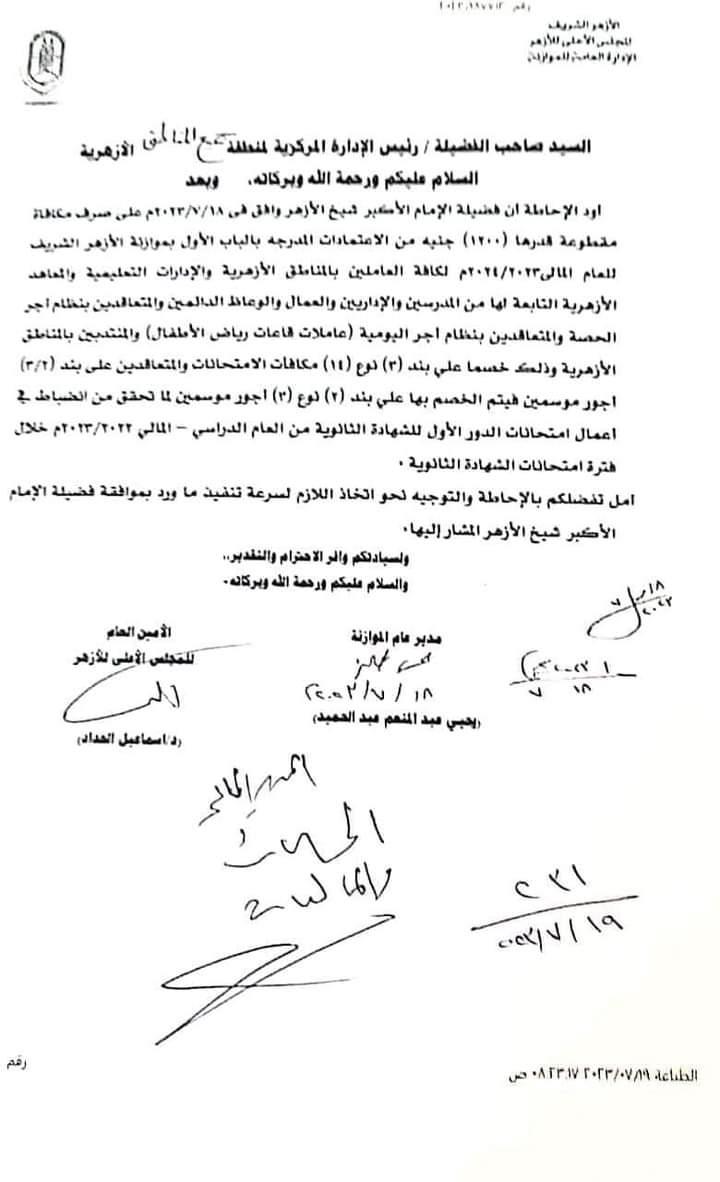 الأزهر الشريف
المجلس الأعلى للأزهر
الإدارة العامة للموازنة
السيد صاحب الفضيلة / رئيس الإدارة المركزية لمنطقة جميع المناطق الأزهرية
السلام عليكم ورحمة الله وبركاته، وبعد
اود الإحاطة ان فضيلة الإمام الأكبر شيخ الأزهر وافق فى ٢٠٢٣/٧/١٨م على صرف مكافاة
مقطوعة قدرها (١٢٠٠) جنيه من الاعتمادات المدرجه بالباب الأول بموازنة الأزهر الشريف
للعام المالى٢٠٢٤/٢٠٢٣م لكافة العاملين بالمناطق الأزهرية والإدارات التعليمية والمعاهد
الأزهرية التابعة لها من المدرسين والإداريين والعمال والوعاظ الدائمين والمتعاقدين بنظام اجر
الحصة والمتعاقدين بنظام اجر اليومية (عاملات قاعات رياض الأطفال) والمنتدبين بالمناطق
الأزهرية وذلك خصما علي بند (٣) نوع (١٤) مكافات الامتحانات والمتعاقدين على بند (٣/٢)
اجور موسمين فيتم الخصم بها علي بند (٢) نوع (٣) اجور موسمين لما تحقق من انضباط في
اعمال امتحانات الدور الأول للشهادة الثانوية من العام الدراسي – المالي ٢٠٢٣/٢٠٢٢م خلال
فترة امتحانات الشهادة الثانوية .
امل تفضلكم بالإحاطة والتوجيه نحو اتخاذ اللازم لسرعة تنفيذ ما ورد بموافقة فضيلة الإمام
الأكبر شيخ الأزهر المشار إليها.
ولسيادتكم وافر الاحترام والتقدير،،
والسلام عليكم ورحمة الله وبركاته.
١٨/٧
٢٠٢٣
مدير عام الموازنة
٢٠٢٣/٧/١٨
(يحيي عبد المنعم عبد الحميد)
الأمين العام
للمجلس الأعلى للأزهر
(د/اسماعيل الحداد)
١٨ ٧
المدير المالي
الحسابات
والماليات
٢٣١
٢٠٢٣/٧/١٩
رقم
الطباعة ٢٠٢٣/٠٧/١٩ ٠٨:٢٣:١٧ ص